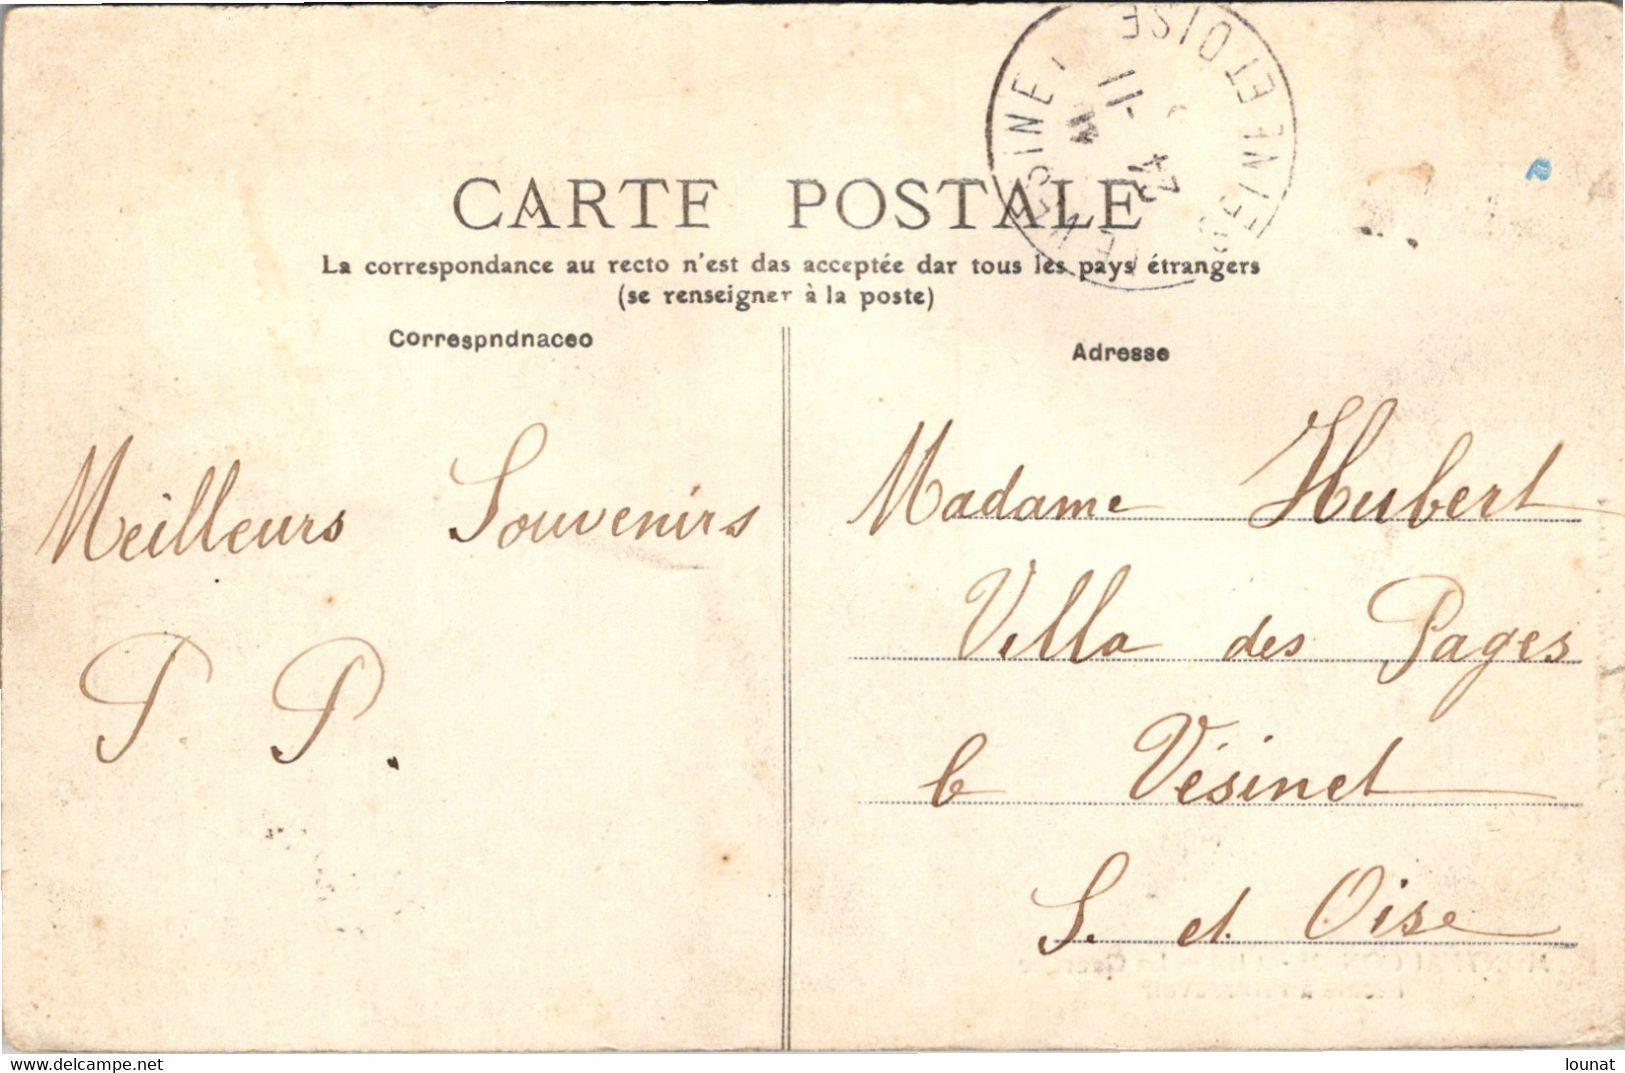 CARTE POSTALE
La correspondance au recto n'est das acceptée dar tous les pays étrangers
(se renseigner à la poste)
Correspndnaceo
Adresse
Meilleurs Souvenirs
P. P.
Madame Hubert
Villa des Pages
le Vésinet
S. et Oise
SEINE ET OISE
delcampe.net
lounat